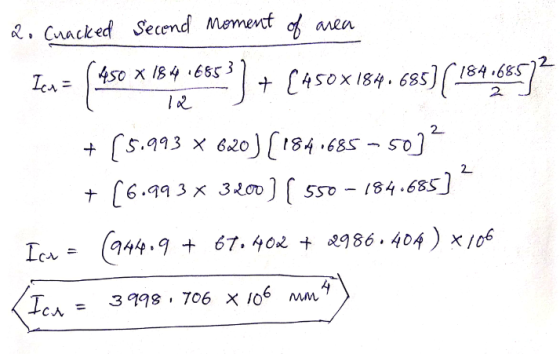 2. Cracked Second Moment of area
Icr = [450 × 184.685³ / 12] + [450 × 184.685] [184.685 / 2]²
+ [5.993 × 620] [184.685 - 50]²
+ [6.993 × 3200] [550 - 184.685]²
Icr = (944.9 + 67.402 + 2986.404) × 10⁶
Icr = 3998.706 × 10⁶ mm⁴